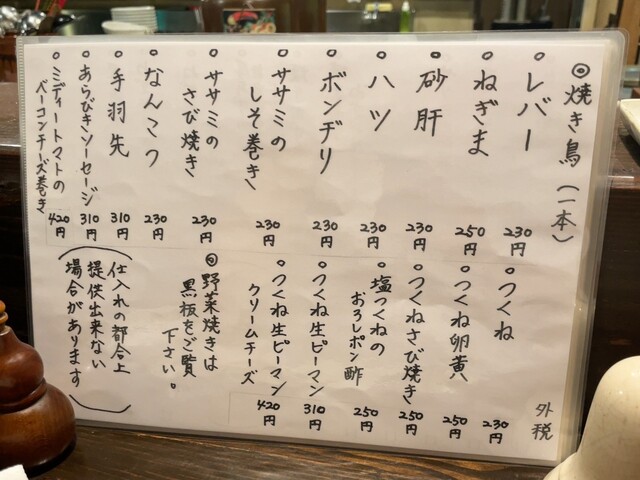 ◎焼き鳥(一本)
○レバー 230円
○ねぎま 250円
○砂肝 230円
○ハツ 230円
○ボンヂリ 230円
○ササミの
しそ巻き 230円
○ササミの
さび焼き 230円
○なんこつ 230円
○手羽先 310円
○あらびきソーセージ 310円
○ミディートマトの
ベーコンチーズ巻き 420円
外税
○つくね 230円
○つくね卵黄 250円
○つくねさび焼き 250円
○塩つくねの
おろしポン酢 250円
○つくね生ピーマン 310円
○つくね生ピーマン
クリームチーズ 420円
◎野菜焼きは
黒板をご覧
下さい。
(仕入れの都合上
提供出来ない
場合があります)